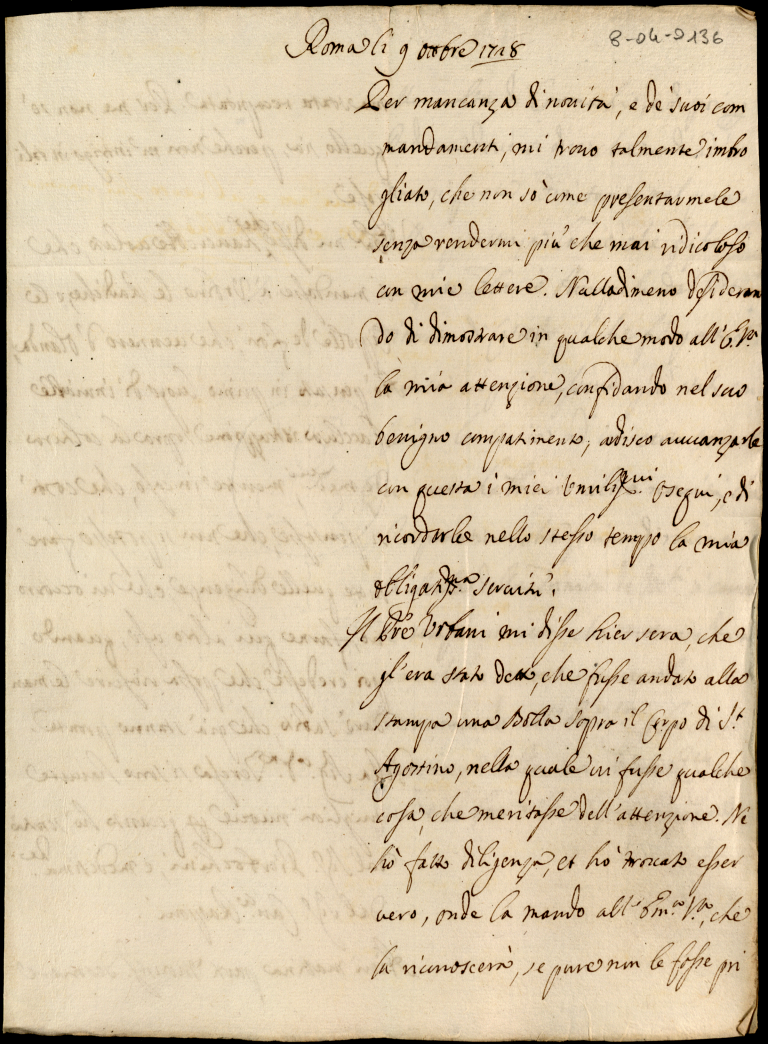 8-04-D136
Roma li 9 ottbre 1728
Per mancanza di novità, e de suoi com
mandamenti, mi trovo talmente imbro
gliato, che non sò come presentarmele
senza rendermi più che mai ridicoloso
con mie lettere. Nulladimeno desideran
do di dimostrare in qualche modo all'E. Vra
la mia attenzione, confidando nel suo
benigno compatimento, ardisco avvanzarle
con questa i miei Umilissmi Ossequi, e di
ricordarle nello stesso tempo la mia
obligatissma servitù.
Il Pre Urbani mi disse hier sera, che
gl'era stato detto, che fusse andato alla
stampa una Bolla sopra il Corpo di St.
Agostino, nella quale vi fusse qualche
cosa, che meritasse dell'attenzione. Ne
hò fatto diligenza, et hò trovato esser
vero, onde la mando all'Emza Vra, che
la riconoscerà, se pure non le fosse pri